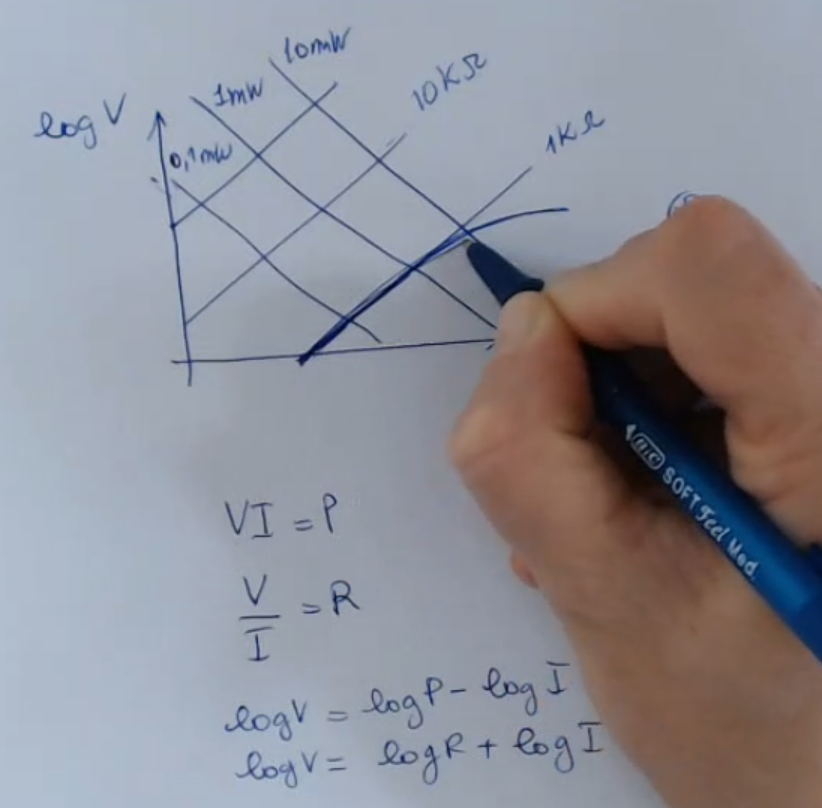 10mW
1mW
10KΩ
log V
0,1mW
1KΩ
BIC SOFT Feel Med.
VI = P
V
I
= R
logV = logP - log I
logV = logR + log I